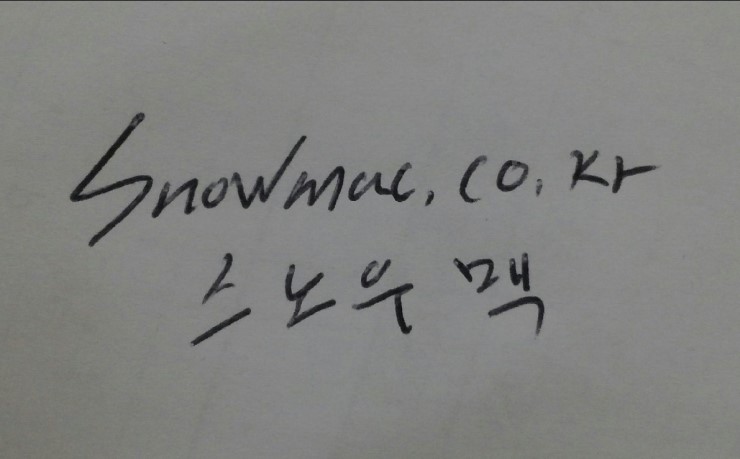 Snowmac.co.kr
스노우맥